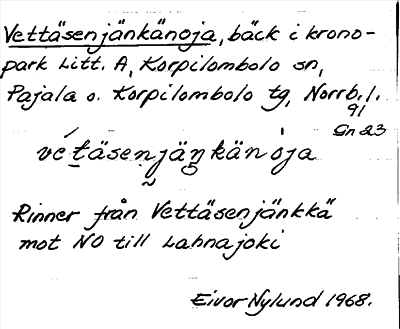 Vettäsenjänkänoja, bäck i krono-
park Litt. A, Korpilombolo sn,
Pajala o. Korpilombolo tg, Norrb. l.
91
Gn 23
vé täsenjäŋkän òja
Rinner från Vettäsenjänkkä
mot NO till Lahnajoki
Eivor Nylund 1968.